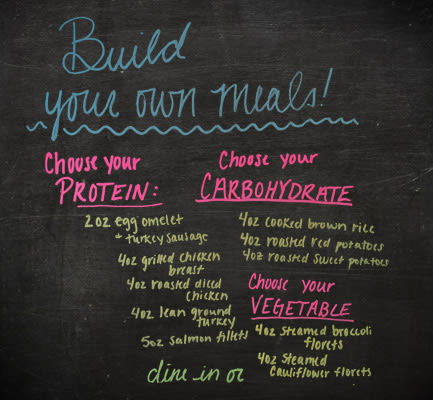 Build
your own meals!
Choose your
PROTEIN:
2oz egg omelet
+ turkey sausage
4oz grilled chicken
breast
4oz roasted diced
chicken
4oz lean ground
turkey
5oz salmon fillets
Choose your
CARBOHYDRATE
4oz cooked brown rice
4oz roasted red potatoes
4oz roasted sweet potatoes
Choose your
VEGETABLE
4oz steamed broccoli
florets
4oz steamed
cauliflower florets
dine in or